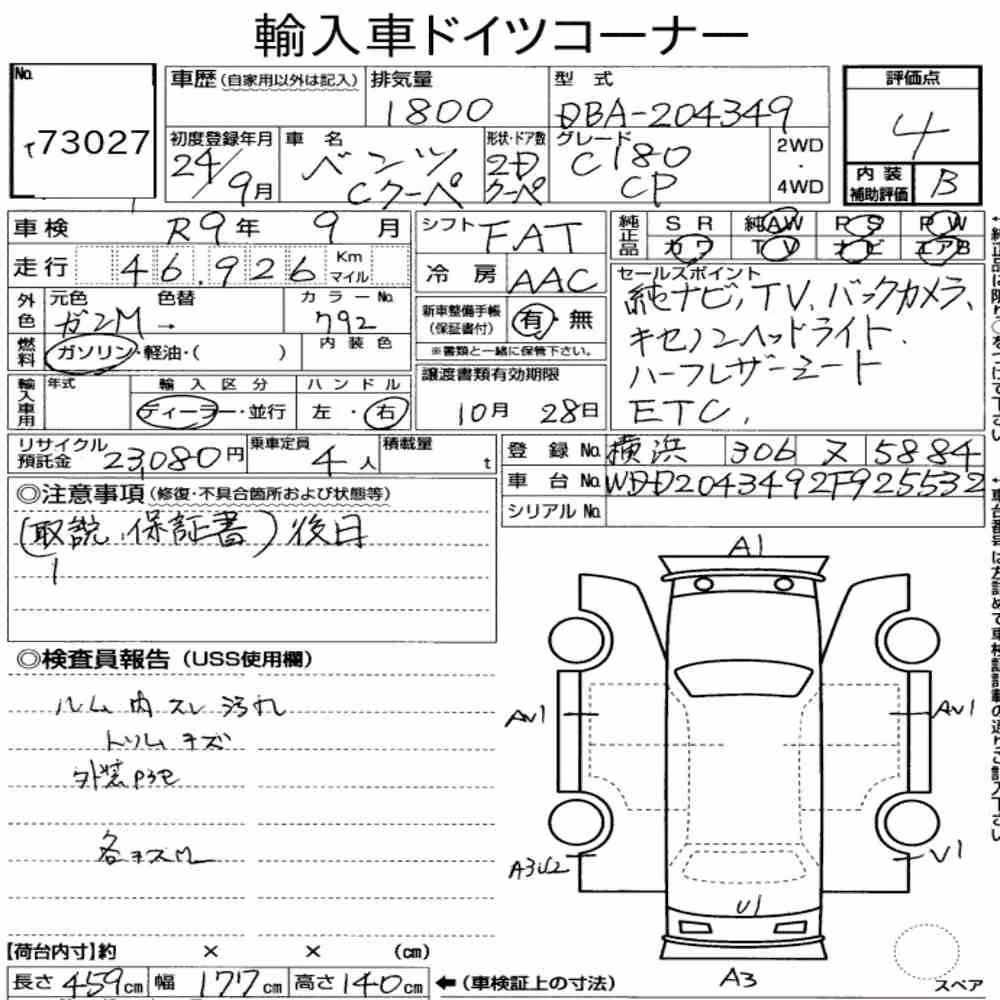 輸入車ドイツコーナー
No.
73027
車歴(自家用以外は記入)
排気量
1800
型式
DBA-204349
評価点
4
初度登録年月
24/9月
車名
ベンツ
Cクーペ
形状・ドア数
2D
クーペ
グレード
C180
CP
2WD
・
4WD
内装
補助評価
B
車検 R9年 9月
シフト FAT
純正品
SR 純AW PS PW
カワ TV ナビ エアB
走行 46,926 Km マイル
冷房 AAC
セールスポイント
純ナビ, TV, バックカメラ,
キセノンヘッドライト.
ハーフレザーシート
ETC,
外色
元色 色替 カラーNo.
ガンM → 792
新車整備手帳
(保証書付)
有・無
※書類と一緒に保管下さい。
燃料
ガソリン・軽油・( )
内装色
譲渡書類有効期限
10月 28日
輸入車用
年式
輸入区分
ディーラー・並行
ハンドル
左・右
リサイクル
預託金 23,080円
乗車定員 4人
積載量 t
登録No. 横浜 306 ヌ 5884
車台No. WDD2043492F925532
シリアルNo.
◎注意事項(修復・不具合箇所および状態等)
(取説、保証書)後日
◎検査員報告(USS使用欄)
ルーム内スレ汚れ
トリムキズ
各キズ
A1
AV1
AV1
A3U2
V1
U1
A3
スペア
【荷台内寸】約 × × (cm)
長さ 459cm 幅 177cm 高さ 140cm ←(車検証上の寸法)